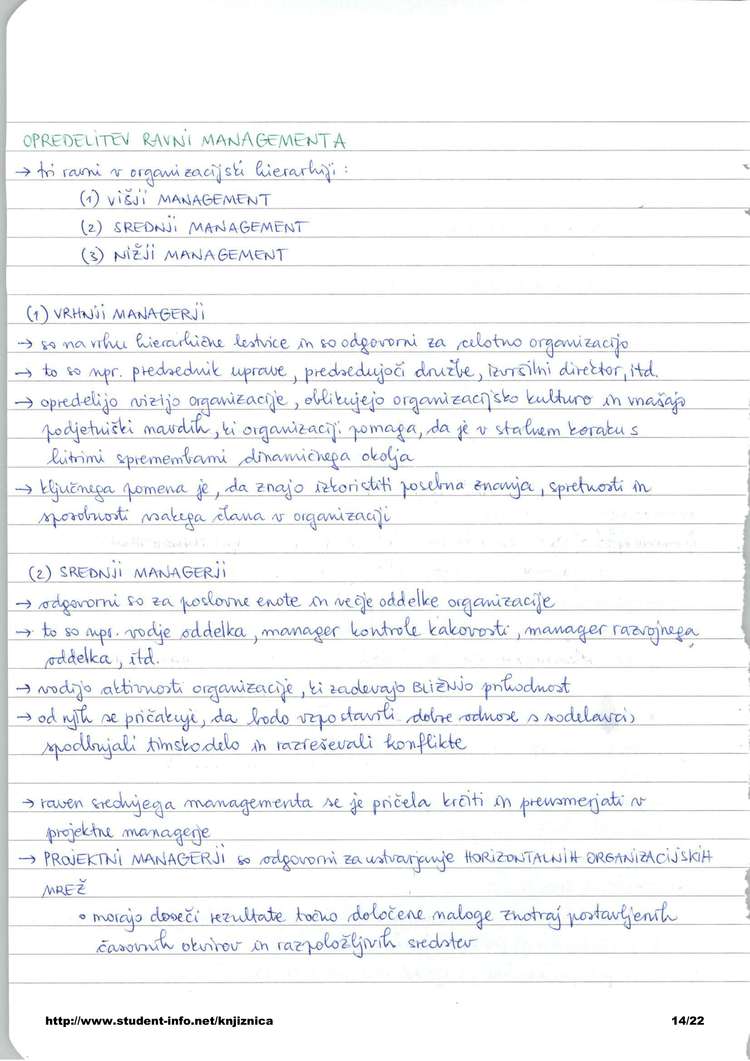 OPREDELITEV RAVNI MANAGEMENTA
→ tri ravni v organizacijski hierarhiji :
(1) VIŠJI MANAGEMENT
(2) SREDNJI MANAGEMENT
(3) NIŽJI MANAGEMENT
(1) VRHNJI MANAGERJI
→ so na vrhu hierarhične lestvice in so odgovorni za celotno organizacijo
→ to so npr. predsednik uprave, predsedujoči družbe, izvršilni direktor, itd.
→ opredelijo vizijo organizacije, oblikujejo organizacijsko kulturo in vnašajo
podjetniški navdih, ki organizaciji pomaga, da je v stalnem koraku s
hitrimi spremembami dinamičnega okolja
→ ključnega pomena je, da znajo izkoristiti posebna znanja, spretnosti in
sposobnosti vsakega člana v organizaciji
(2) SREDNJI MANAGERJI
→ odgovorni so za poslovne enote in večje oddelke organizacije
→ to so npr. vodje oddelka, manager kontrole kakovosti, manager razvojnega
oddelka, itd.
→ vodijo aktivnosti organizacije, ki zadevajo BLIŽNJO prihodnost
→ od njih se pričakuje, da bodo vzpostavili dobre odnose s sodelavci,
spodbujali timsko delo in razreševali konflikte
→ raven srednjega managementa se je pričela krčiti in preusmerjati v
projektne managerje
→ PROJEKTNI MANAGERJI so odgovorni za ustvarjanje HORIZONTALNIH ORGANIZACIJSKIH
MREŽ
• morajo doseči rezultate točno določene naloge znotraj postavljenih
časovnih okvirov in razpoložljivih sredstev
http://www.student-info.net/knjiznica 14/22